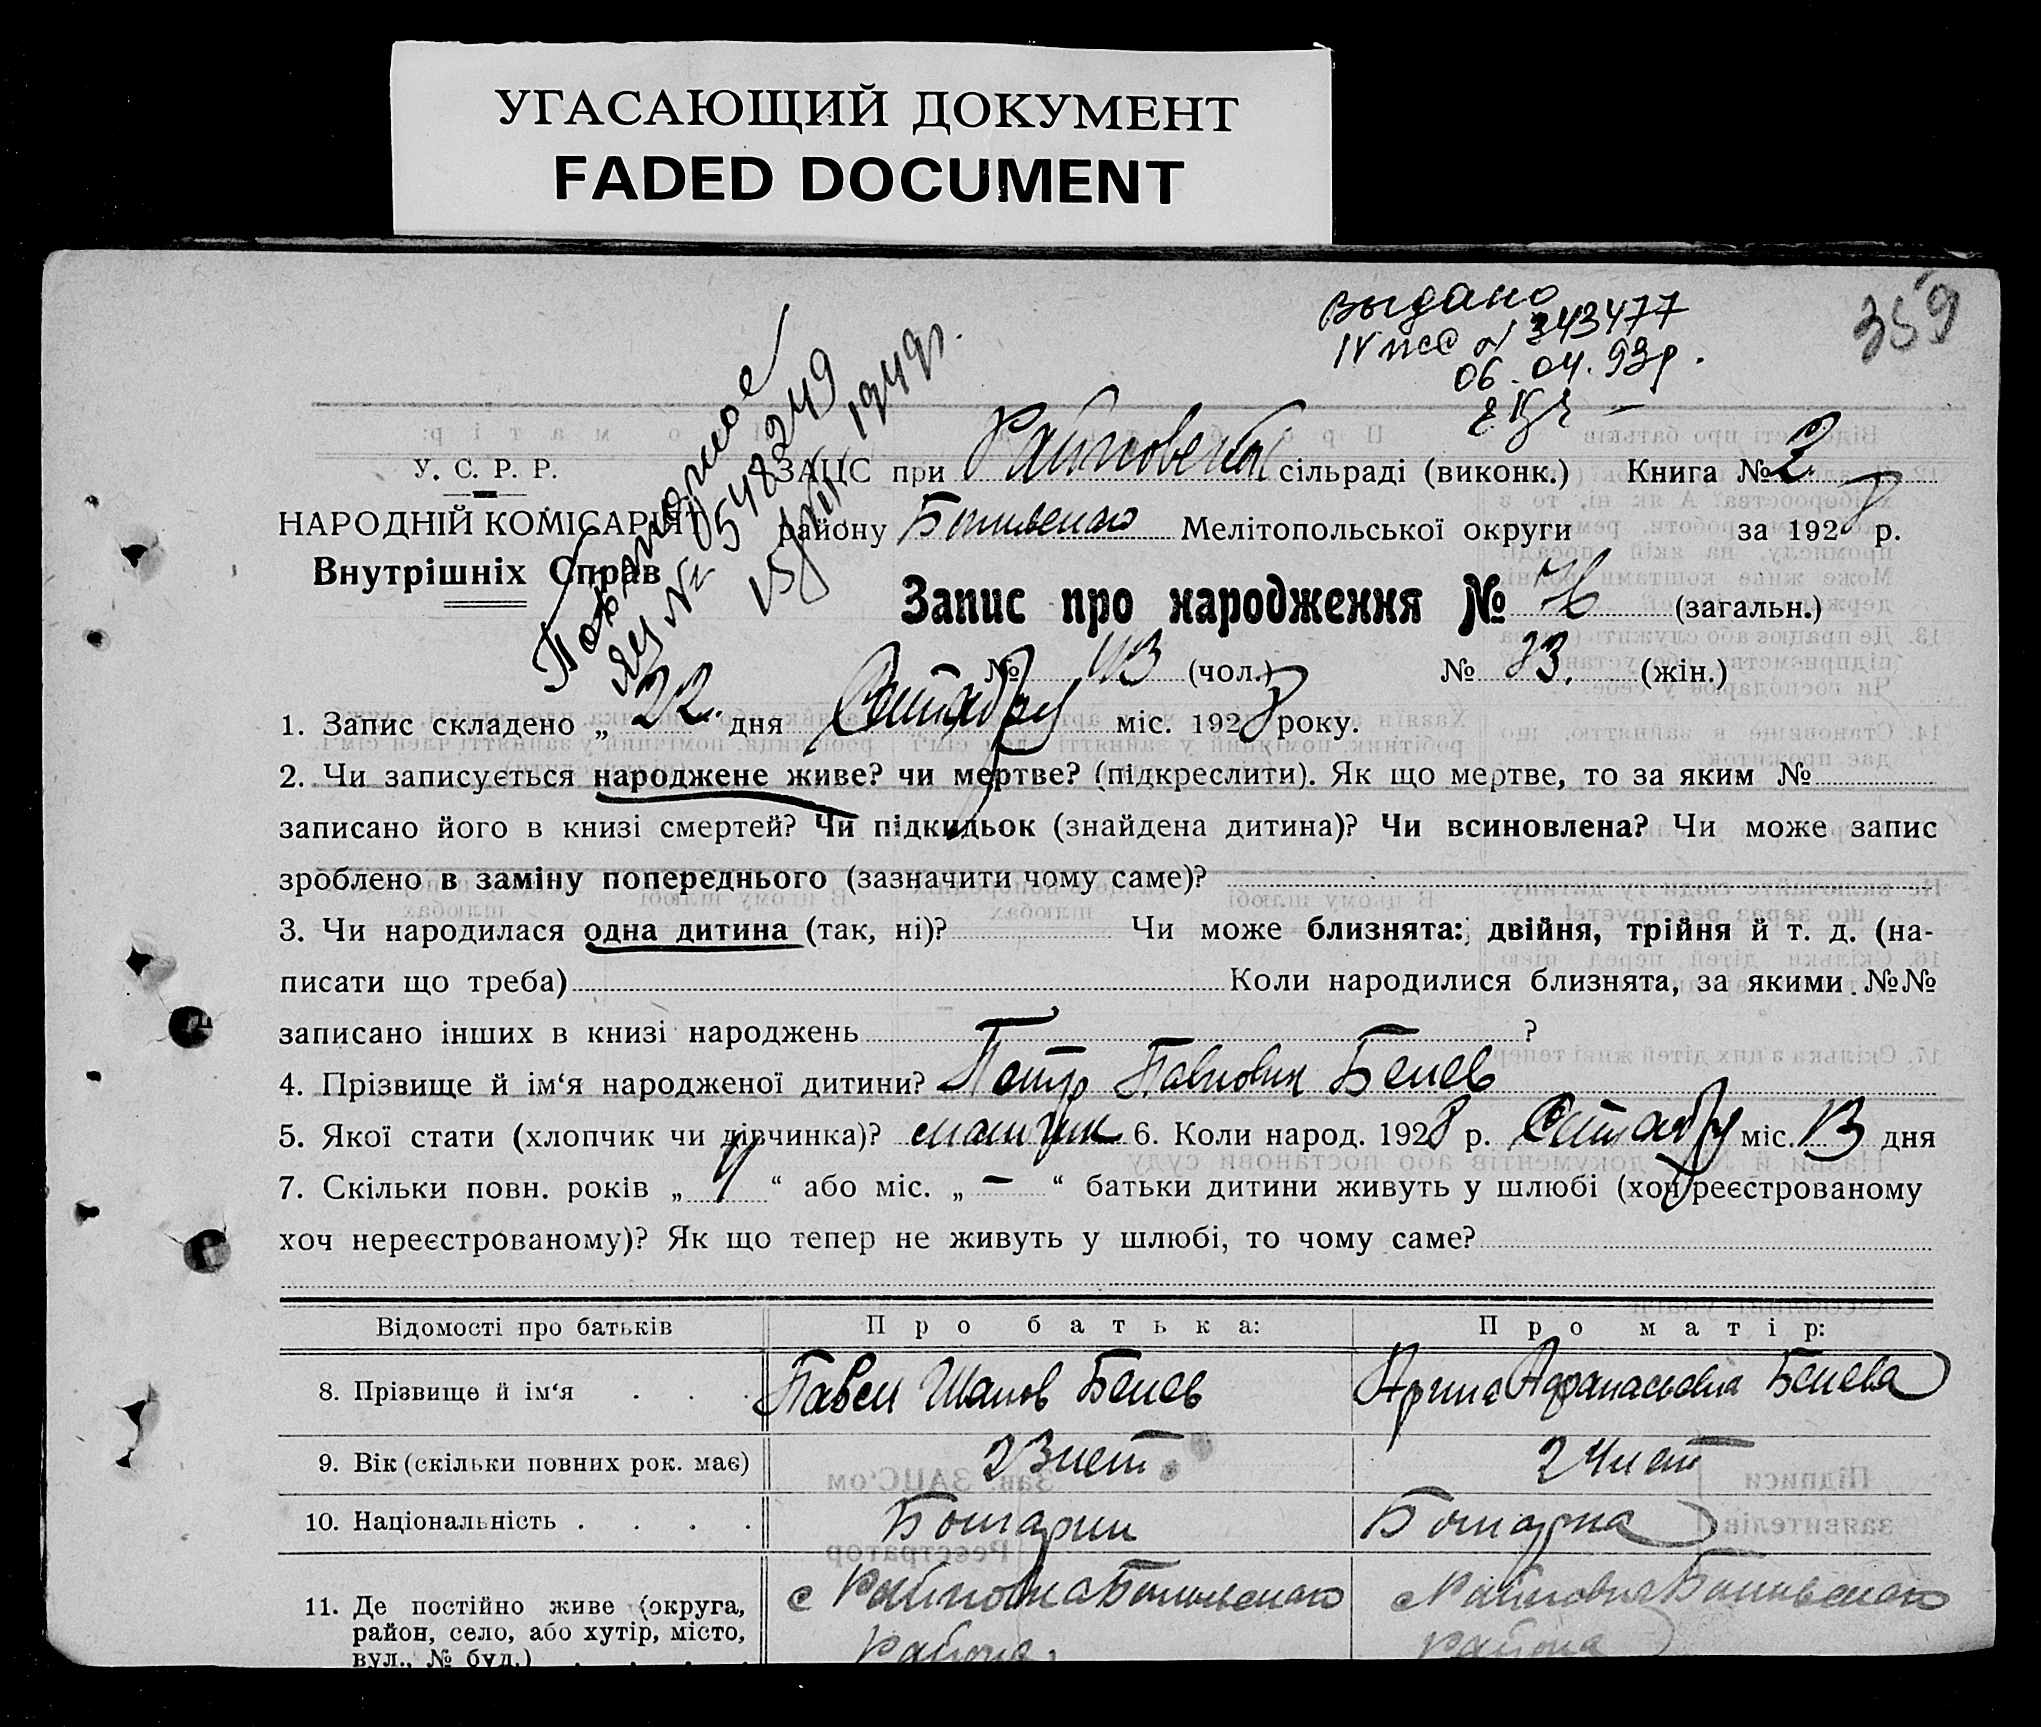 УГАСАЮЩИЙ ДОКУМЕНТ
FADED DOCUMENT
выдано
N 343477
06.04.93р.
359
Повторное
ЯЦ № 054 1949г.
У. С. Р. Р.
НАРОДНІЙ КОМІСАРІЯТ
Внутрішніх Справ
ЗАЦС при Райновской сільраді (виконк.) Книга № 2
району Мелітопольської округи за 1928 р.
Запис про народження № (загальн.)
№ 43 (чол.) № 33. (жін.)
1. Запис складено „ 22 дня Сентября міс. 1928 року.
2. Чи записується народжене живе? чи мертве? (підкреслити). Як що мертве, то за яким №
записано його в книзі смертей? Чи підкидьок (знайдена дитина)? Чи всиновлена? Чи може запис
зроблено в заміну попереднього (зазначити чому саме)?
3. Чи народилася одна дитина (так, ні)? Чи може близнята: двійня, трійня й т. д. (на-
писати що треба) Коли народилися близнята, за якими №№
записано інших в книзі народжень ?
4. Прізвище й ім‘я народженої дитини? Петр Павлович Белев
5. Якої стати (хлопчик чи дівчинка)? мальчик 6. Коли народ. 1928 р. Сентября міс. 13 дня
7. Скільки повн. років „ 4 “ або міс. „ — “ батьки дитини живуть у шлюбі (хоч реєстрованому
хоч нереєстрованому)? Як що тепер не живуть у шлюбі, то чому саме?
Відомості про батьків Про батька: Про матір:
8. Прізвище й ім‘я . . . Павел Белев Афанасьевна Белева
9. Вік (скільки повних рок. має) 23 лет. 24 лет
10. Національність . . . . Болгарин Болгарка
11. Де постійно живе (округа, с Райновка Ботиевского с Райновка Ботиевского
район, село, або хутір, місто, района. района
вул., № буд.) . . . .